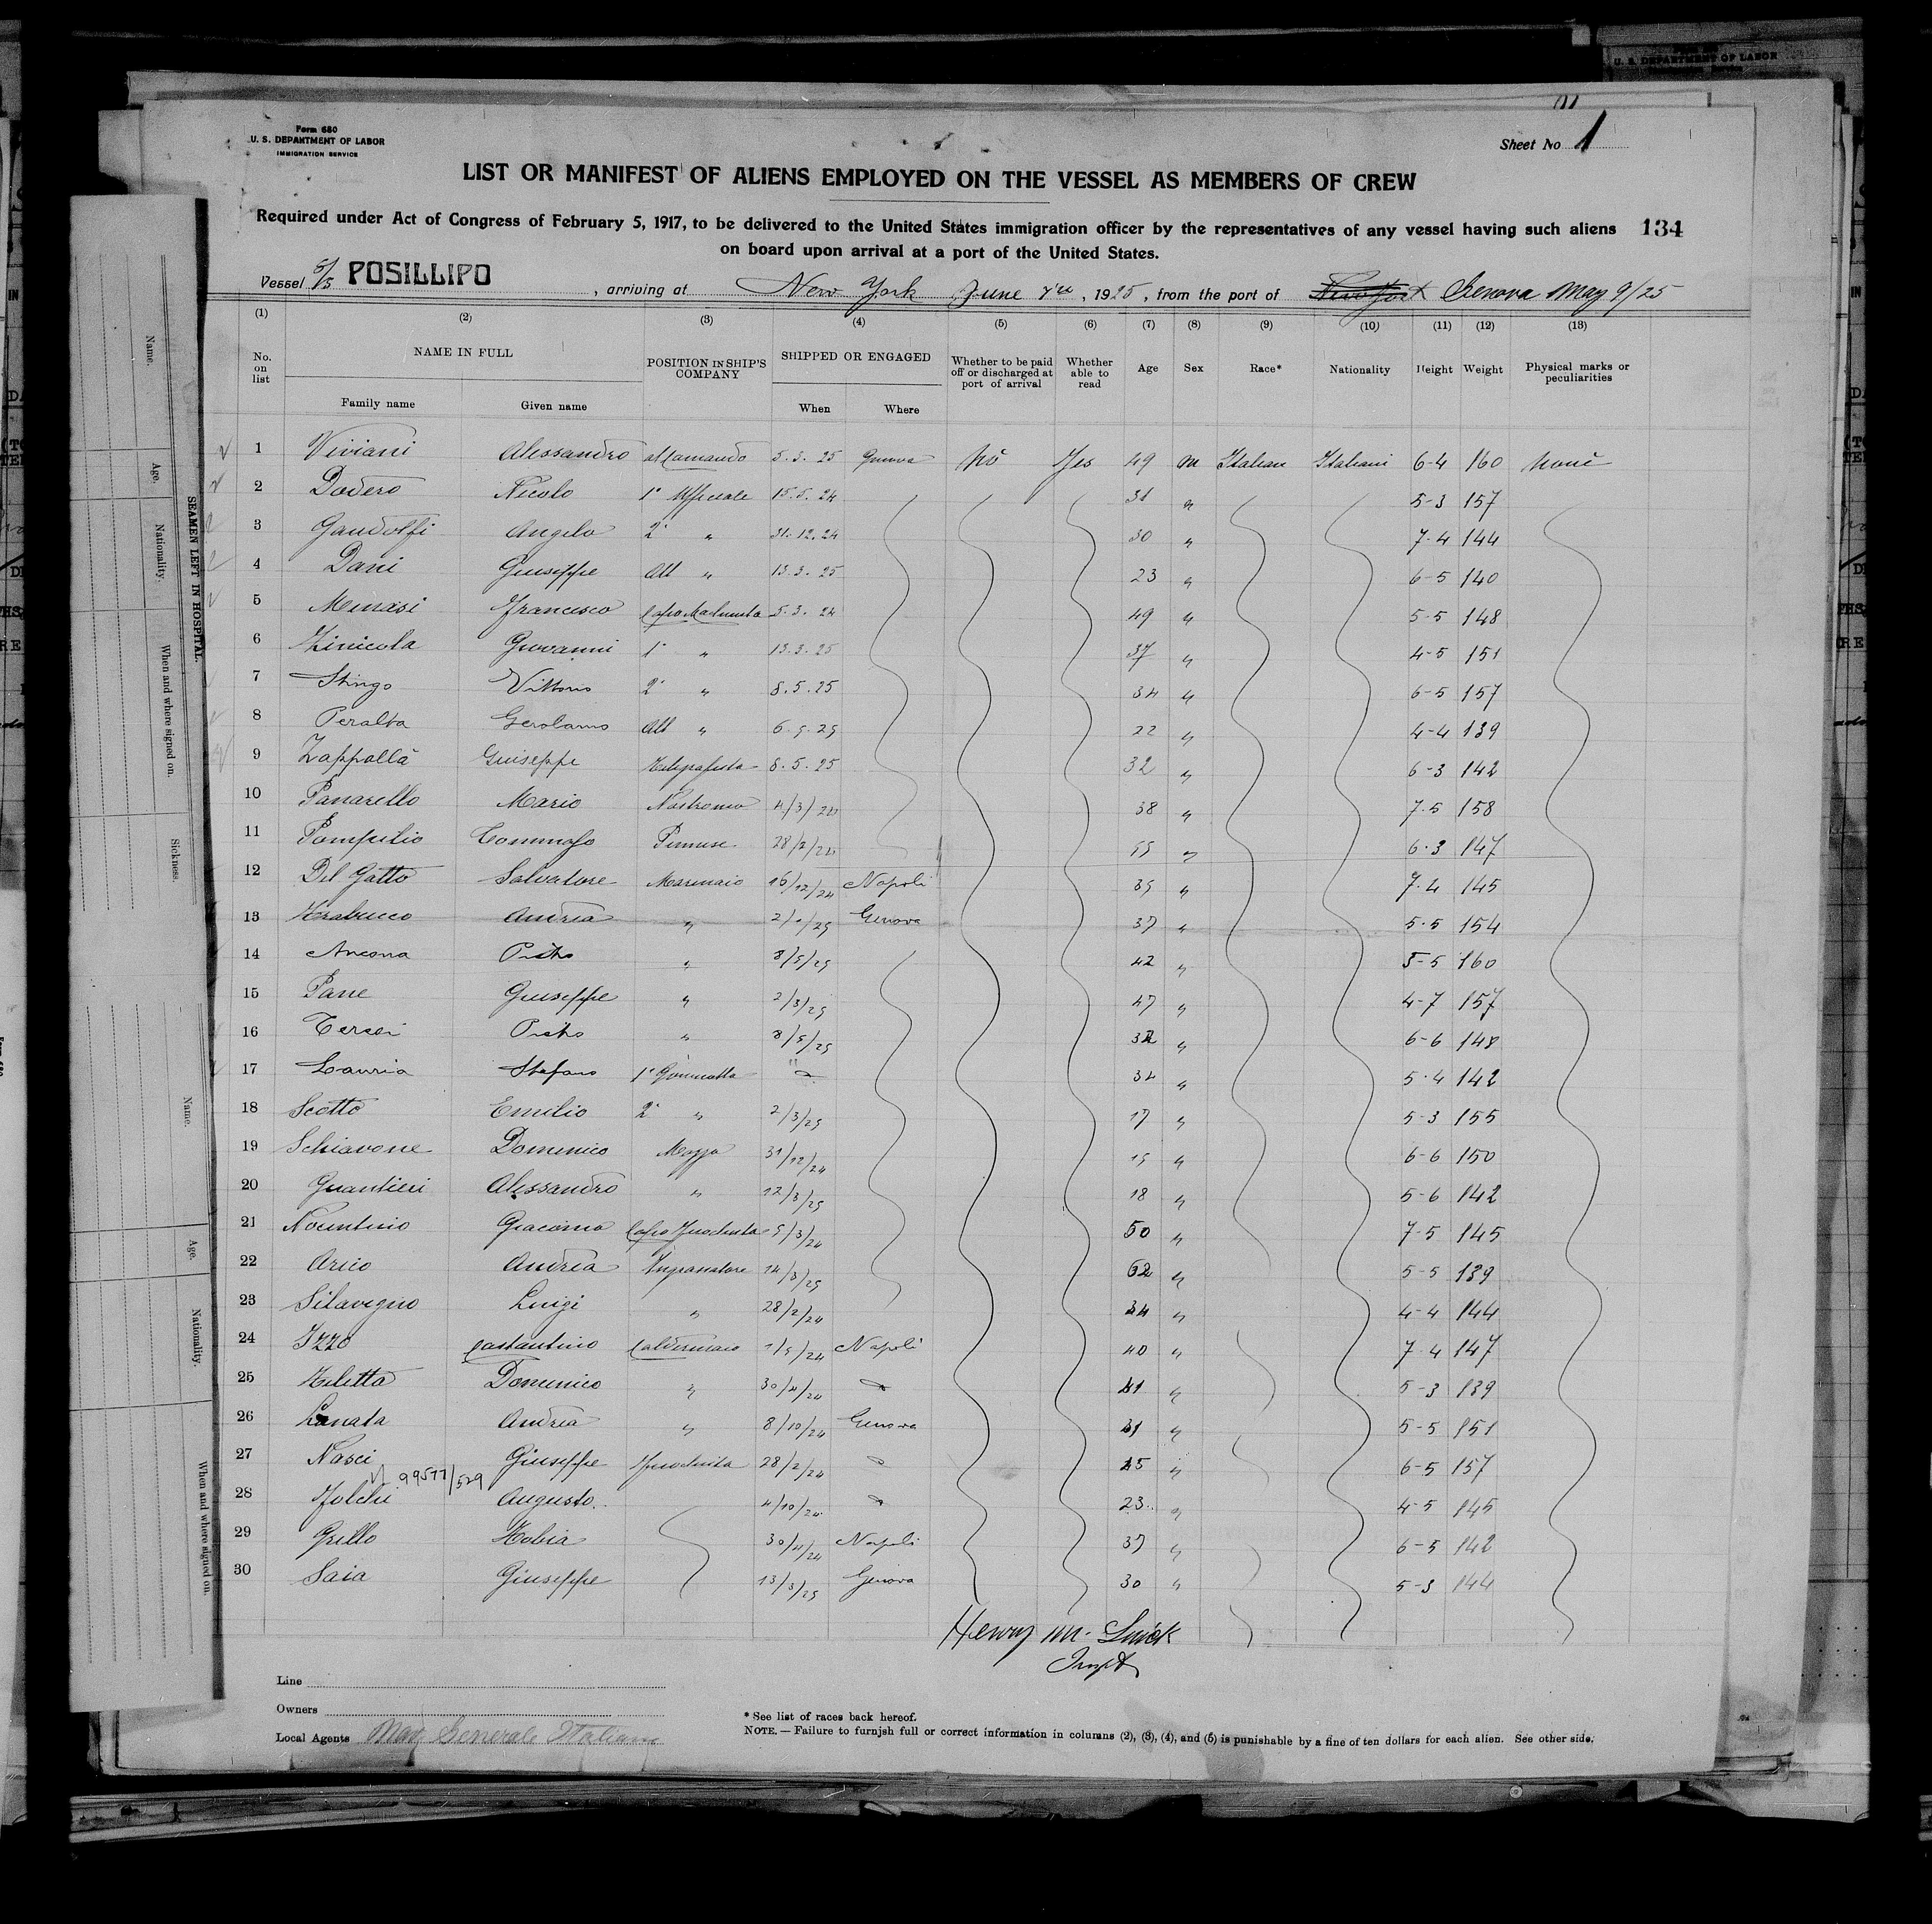 U. S. DEPARTMENT OF LABOR
Form 680
U. S. DEPARTMENT OF LABOR
IMMIGRATION SERVICE
Sheet No 1
LIST OR MANIFEST OF ALIENS EMPLOYED ON THE VESSEL AS MEMBERS OF CREW
Required under Act of Congress of February 5, 1917, to be delivered to the United States immigration officer by the representatives of any vessel having such aliens 134
on board upon arrival at a port of the United States.
Vessel S/S POSILLIPO , arriving at New York June , 1925, from the port of Genova May 9/25
(1) (2) (3) (4) (5) (6) (7) (8) (9) (10) (11) (12) (13)
No. on list NAME IN FULL POSITION IN SHIP'S COMPANY SHIPPED OR ENGAGED Whether to be paid off or discharged at port of arrival Whether able to read Age Sex Race* Nationality Height Weight Physical marks or peculiarities
Family name Given name When Where
1 Viviani Alessandro al Comando 5.3.25 Genova No Yes 49 m Italian Italiani 6-4 160 None
2 Dodero Nicolo 1° Ufficiale 15.5.24 31 " 5-3 157
3 Gandolfi Angelo 2° " 31.12.24 30 " 7-4 144
4 Dani Giuseppe All " 13.3.25 23 " 6-5 140
5 Menasi Francesco Capo Macchinista 5.3.24 49 " 5-5 148
6 Zinicola Giovanni 1° " 13.3.25 37 " 4-5 151
7 Stingo Vittorio 2° " 8.5.25 34 " 6-5 157
8 Peralta Gerolamo All " 6.5.25 22 " 4-4 139
9 Zappallà Giuseppe 8.5.25 32 " 6-3 142
10 Panarello Mario Nostromo 4/3/24 38 " 7-5 158
11 Pompilio Tommaso 28/2/24 55 " 6-3 147
12 Del Gatto Salvatore Marinaio 16/12/24 Napoli 35 " 7-4 145
13 Trabucco Andrea " 2/1/25 Genova 37 " 5-5 154
14 Ancona Pietro " 8/5/25 42 " 5-5 160
15 Pane Giuseppe " 2/3/25 47 " 4-7 157
16 Terceri Pietro " 8/5/25 32 " 6-6 148
17 Lauria Stefano 1° 34 " 5-4 142
18 Scotto Emilio 2° " 2/3/25 17 " 5-3 155
19 Schiavone Domenico Mozzo 31/12/24 15 " 6-6 150
20 Guantieri Alessandro " 12/3/25 18 " 5-6 142
21 Giacomo Capo Fuochista 5/3/24 50 " 7-5 145
22 Arico Andrea Ingrassatore 14/3/25 62 " 5-5 139
23 Silavegno Luigi " 28/2/24 34 " 4-4 144
24 Izzo Costantino Calderinaio 1/5/24 Napoli 40 " 7-4 147
25 Teletta Domenico " 30/4/24 41 " 5-3 139
26 Lanata Andrea " 8/10/24 Genova 31 " 5-5 151
27 Nasci Giuseppe Fuochista 28/2/24 45 " 6-5 157
99577/529
28 Folchi Augusto 4/10/24 23 " 4-5 145
29 Grillo Tobia 30/4/24 Napoli 37 " 6-5 142
30 Saia Giuseppe 13/3/25 Genova 30 " 5-3 144
Henry M.
Inspt
Line
Owners
Local Agents Nav. Generale Italiana
* See list of races back hereof.
NOTE.— Failure to furnish full or correct information in columns (2), (3), (4), and (5) is punishable by a fine of ten dollars for each alien. See other side.
SEAMEN LEFT IN HOSPITAL.
Name.
Age.
Nationality.
When and where signed on.
Sickness.
Name.
Age.
Nationality.
When and where signed on.